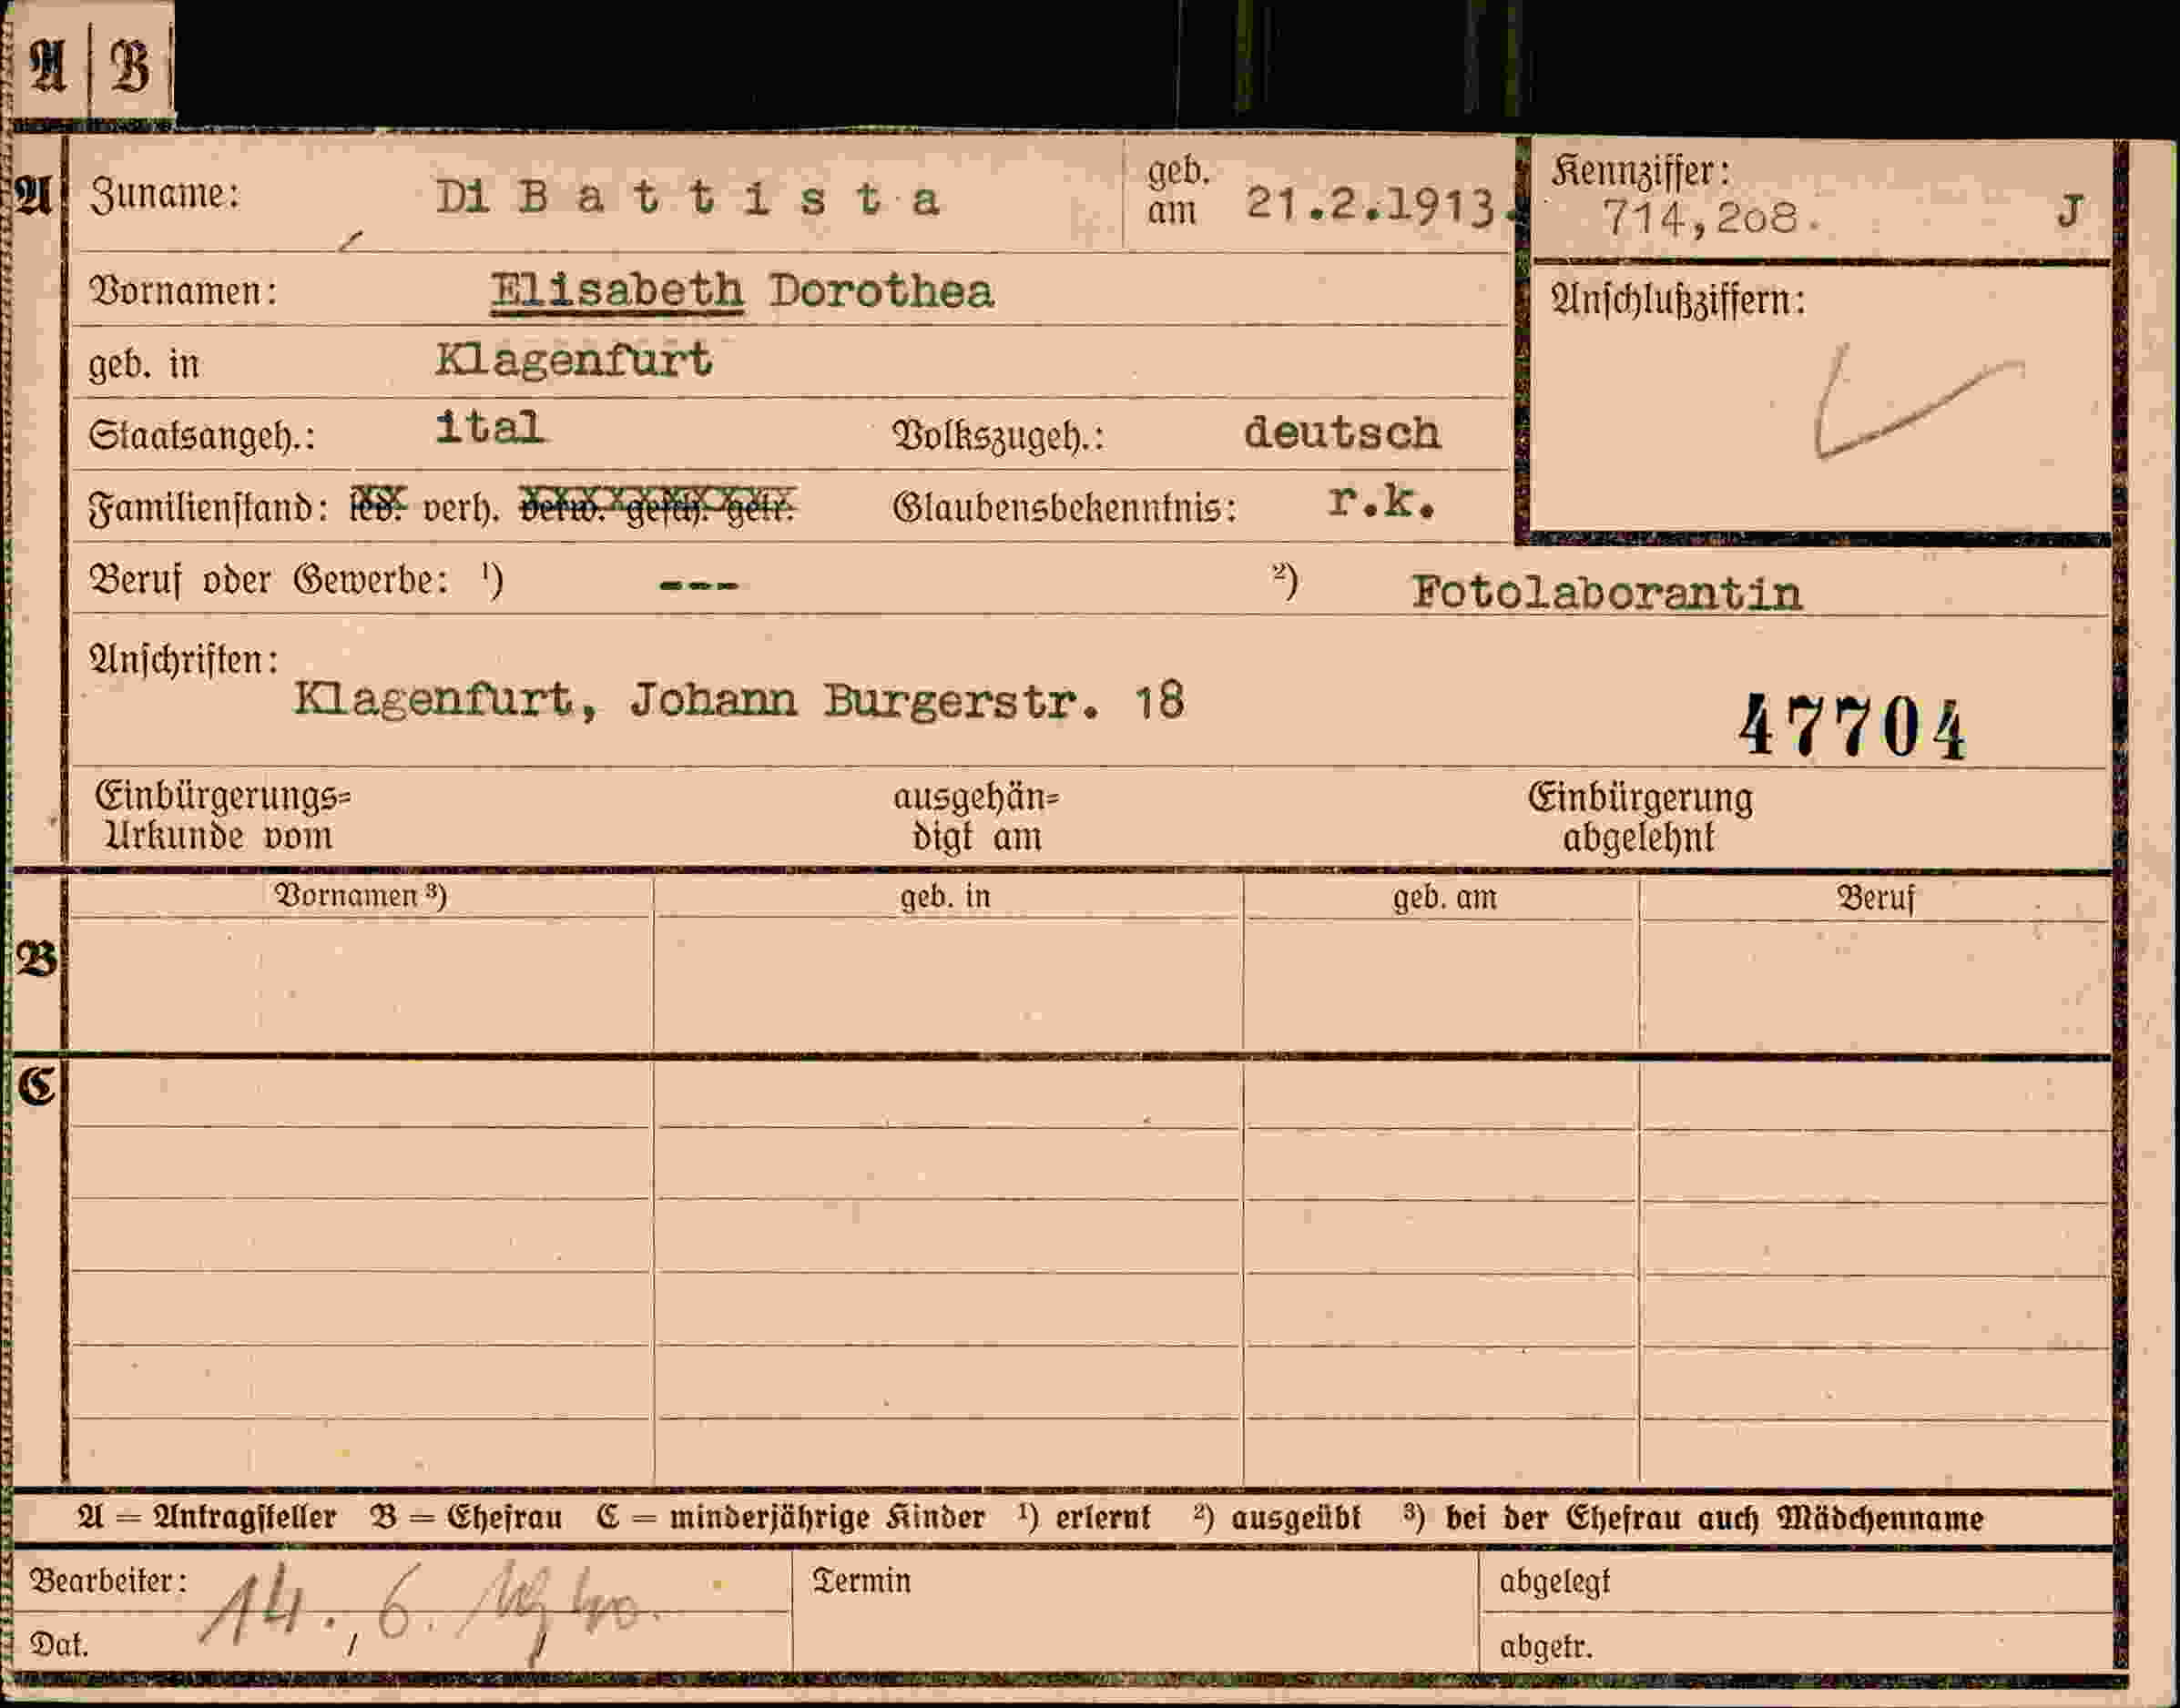 A | B
A Zuname: Di B a t t i s t a geb. am 21.2.1913. Kennziffer: 714,208. J
Vornamen: Elisabeth Dorothea Anschlußziffern:
geb. in Klagenfurt
Staatsangeh.: ital Volkszugeh.: deutsch
Familienstand: led. verh. verw. gesch. getr. Glaubensbekenntnis: r.k.
Beruf oder Gewerbe: ¹) --- ²) Fotolaborantin
Anschriften:
Klagenfurt, Johann Burgerstr. 18 47704
Einbürgerungs= ausgehän= Einbürgerung
Urkunde vom digt am abgelehnt
Vornamen ³) geb. in geb. am Beruf
B
C
A = Antragsteller B = Ehefrau C = minderjährige Kinder ¹) erlernt ²) ausgeübt ³) bei der Ehefrau auch Mädchenname
Bearbeiter: 14. 6. Termin abgelegt
Dat. abgetr.